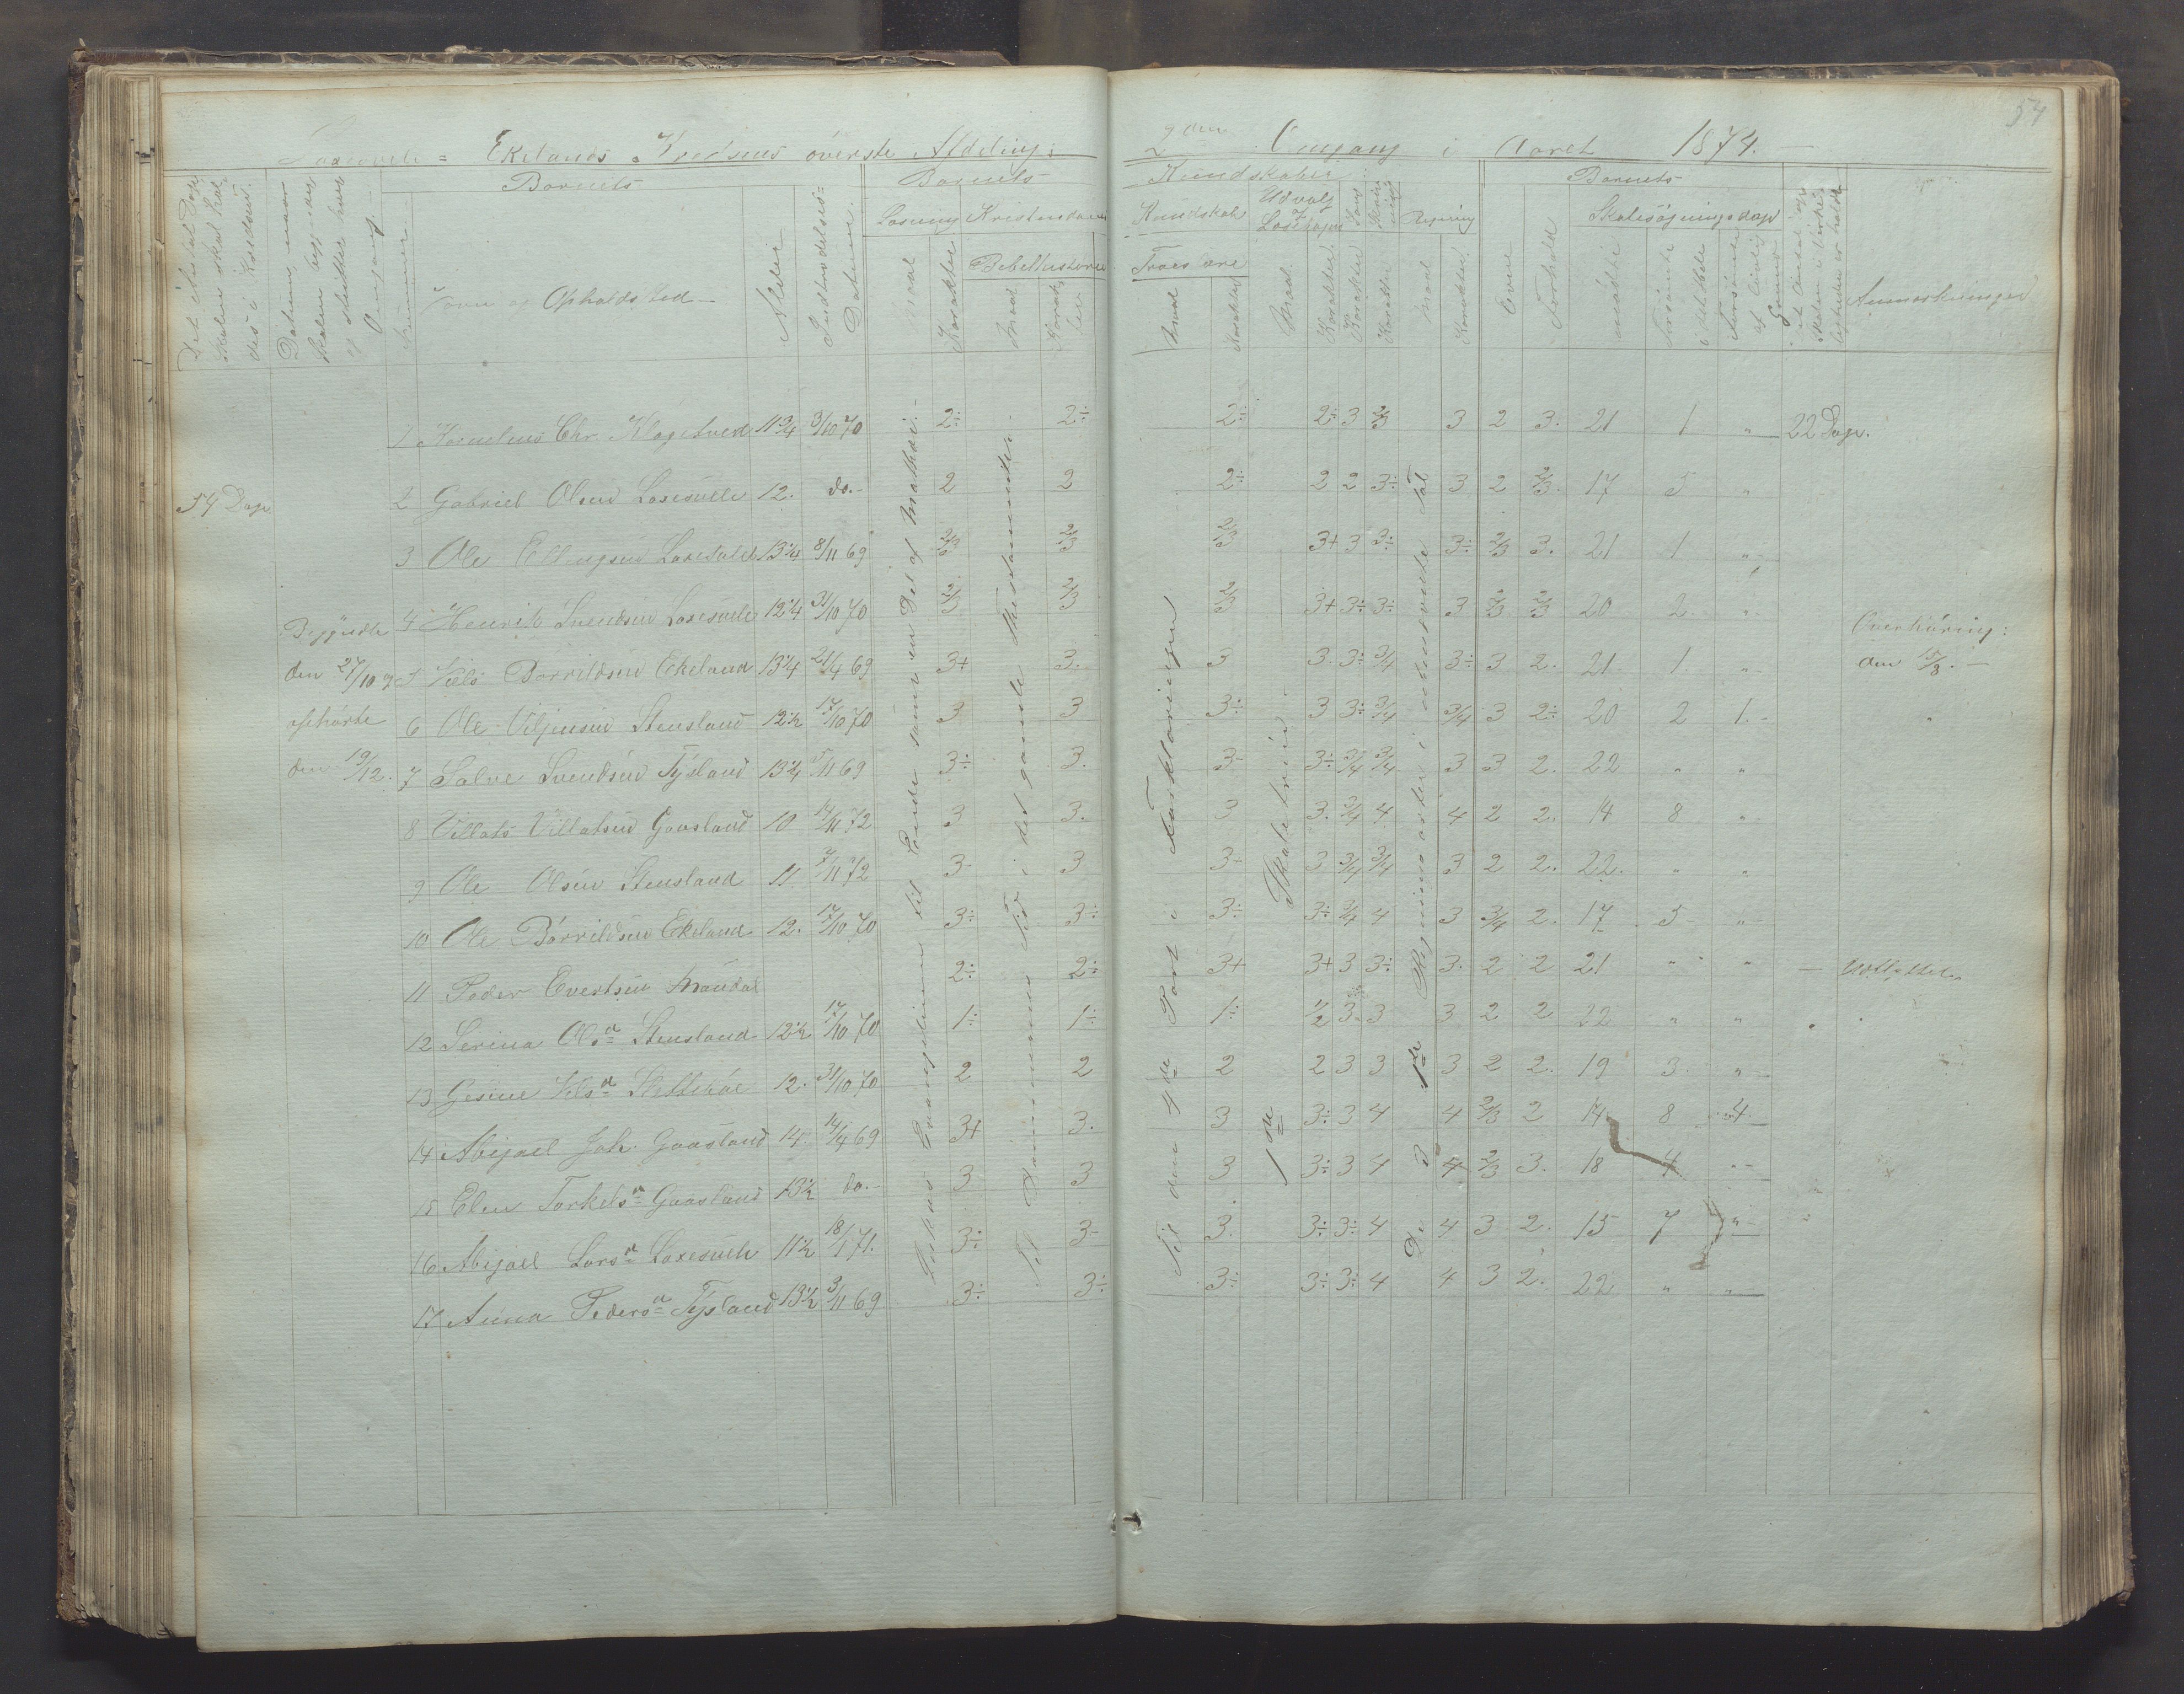 Ekelands Kredsens överste Afdeling:
2den Omgang i Aaret 1874.
54
Det Antal Dage Skolen skal holdes i Kredsen.
Datum, naar Skolen begyndte og sluttede hver Omgang.
Barnets
Nummer
Navn og Opholdssted
Alder
Indtrædelses-Datum.
Barnets
Læsning
Kristendoms
Maal
Karakter
Bibelhistorie
Maal
Karakter
Kundskaber
Kundskab
Troeslære
Maal
Karakter
Udvalg af Læsebogen
Maal
Karakter
Sang
Karakter
Skrivning
Karakter
Regning
Maal
Karakter
Barnets
Evne
Forhold
Skolesøgningsdage
mødte
Forsømte i det Hele
Forsømte af lovlig Grund
Anmærkninger
54 Dage
Begyndte
den 27/10 og
ophørte
den 19/12.
1 Kornelius Chr. Klogetved 11 3/4 3/10 70 2÷ 2÷ 2÷ 2÷ 3 2/3 3 2 3. 21 1 " 22 Dage.
2 Gabriel Olsen Laxesvele 12. do.- 2 2 2÷ 2 2 3÷ 3 2 2/3. 17 5 "
3 Ole Ellingsen Laxesvele 13 1/4 8/11 69 2/3 2/3 2/3 3+ 3 3÷ 3÷ 2/3 3. 21 1 "
4 Henrik Svendsen Laxesvele 12 1/4 31/10 70 2/3 2/3 2/3 3+ 3÷ 3÷ 3 2/3 2/3 20 2 "
5 Niels Börrildsen Ekeland 13 1/4 21/4 69 3+ 3. 3 3. 3÷ 3/4 3÷ 3 2. 21 1 "
6 Ole Viljensen Stensland 12 1/2 17/10 70 3 3 3÷ 3 3÷ 3/4 3/4 3 2÷ 20 2 1.
7 Salve Svendsen Tysland 13 1/4 5/11 69 3÷ 3. 3- 3÷ 3/4 3/4 3 3 2. 22 " "
8 Villats Villatsen Gaasland 10 14/11 72 3 3. 3 3. 3/4 4 4 2 2. 14 8 "
9 Ole Olsen Stensland 11 7/11 72 3- 3 3- 3 3/4 3/4 3 2 2. 22. " "
10 Ole Börrildsen Ekeland 12. 17/10 70 3÷ 3÷ 3÷ 3÷ 3/4 4 3 3/4 2. 17 5 "
11 Peder Evertsen Mandal 2÷ 2÷ 3+ 3+ 3 3÷ 3. 2 2 21 " "
12 Serina Olsa Stensland 12 1/2 17/10 70 1÷ 1÷ 1÷ 1/2 3 3 3 2 2 22 " "
13 Gesine Nilsa 12. 31/10 70 2 2 2 2 3 3 3 2 2. 19 3. "
14 Abigael Joh. Gaasland 14 14/4 69 3+ 3. 3 3÷ 3 4 4 2/3 2 14 8 4
15 Elen Torkelsa Gaasland 13 1/2 do.- 3 3 3 3÷ 3 4 4 2/3 3. 18 4 "
16 Abigael Larsa Laxesvele 11 1/2 18/1 71. 3÷ 3- 3. 3÷ 3÷ 4 4 3 2. 15 7 "
17 Anna Pedersa Tysland 13 1/2 3/11 69 3÷ 3÷ 3÷ 3÷ 3÷ 4 4 3 2. 22 " "
Evangelium til Ende samt en Del af Mathæi.
Til Dommernes Tid i det gamle Thestamente.
Til den 4de Part i Forklaringen
1ste Skoletrin
De 3 1ste Regningsarter i ubenævnte Tal
Overhöring:
den 15/3.